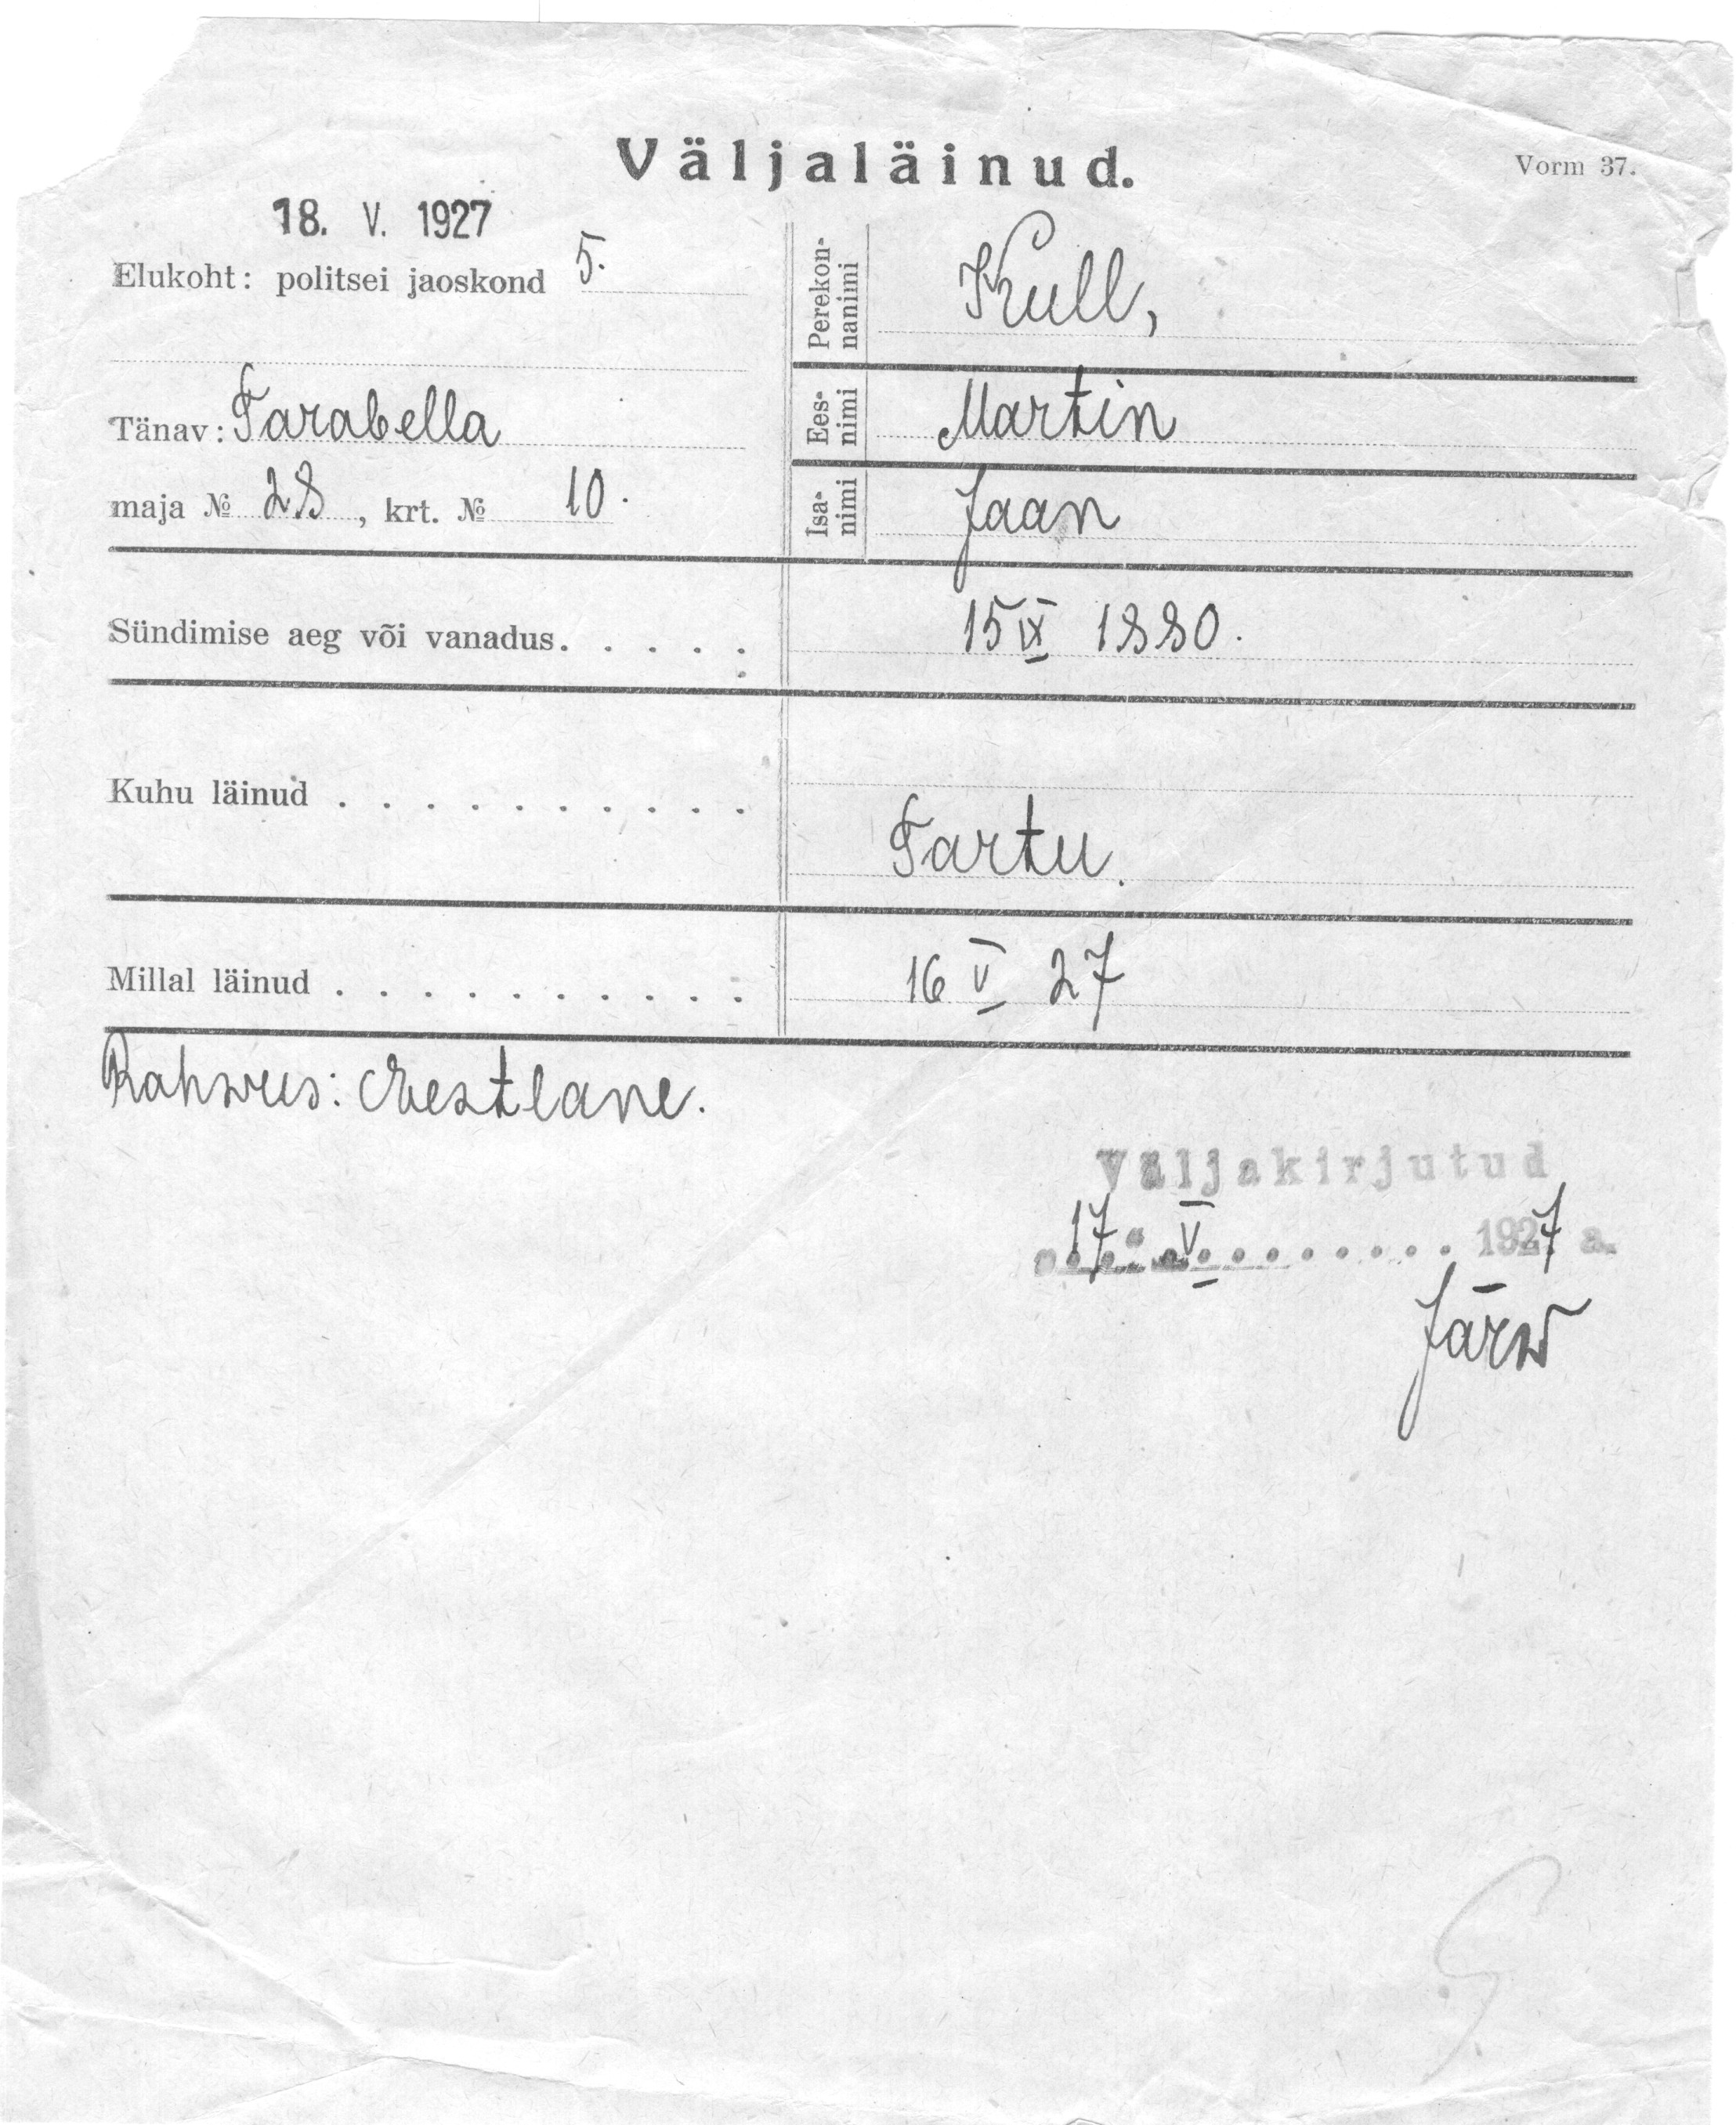 Väljaläinud.
Vorm 37.
18. V. 1927
Elukoht: politsei jaoskond 5.
Tänav: Tarabella
maja № 28, krt. № 10.
Perekon-
nanimi
Kull,
Ees-
nimi
Martin
Isa-
nimi
Jaan
Sündimise aeg või vanadus. . . . . 15 IX 1880.
Kuhu läinud . . . . . . . . . .
Tartu.
Millal läinud . . . . . . . . . . 16 V 27
Rahwus: Eestlane.
Väljakirjutud
17" V 1927 a.
Järw